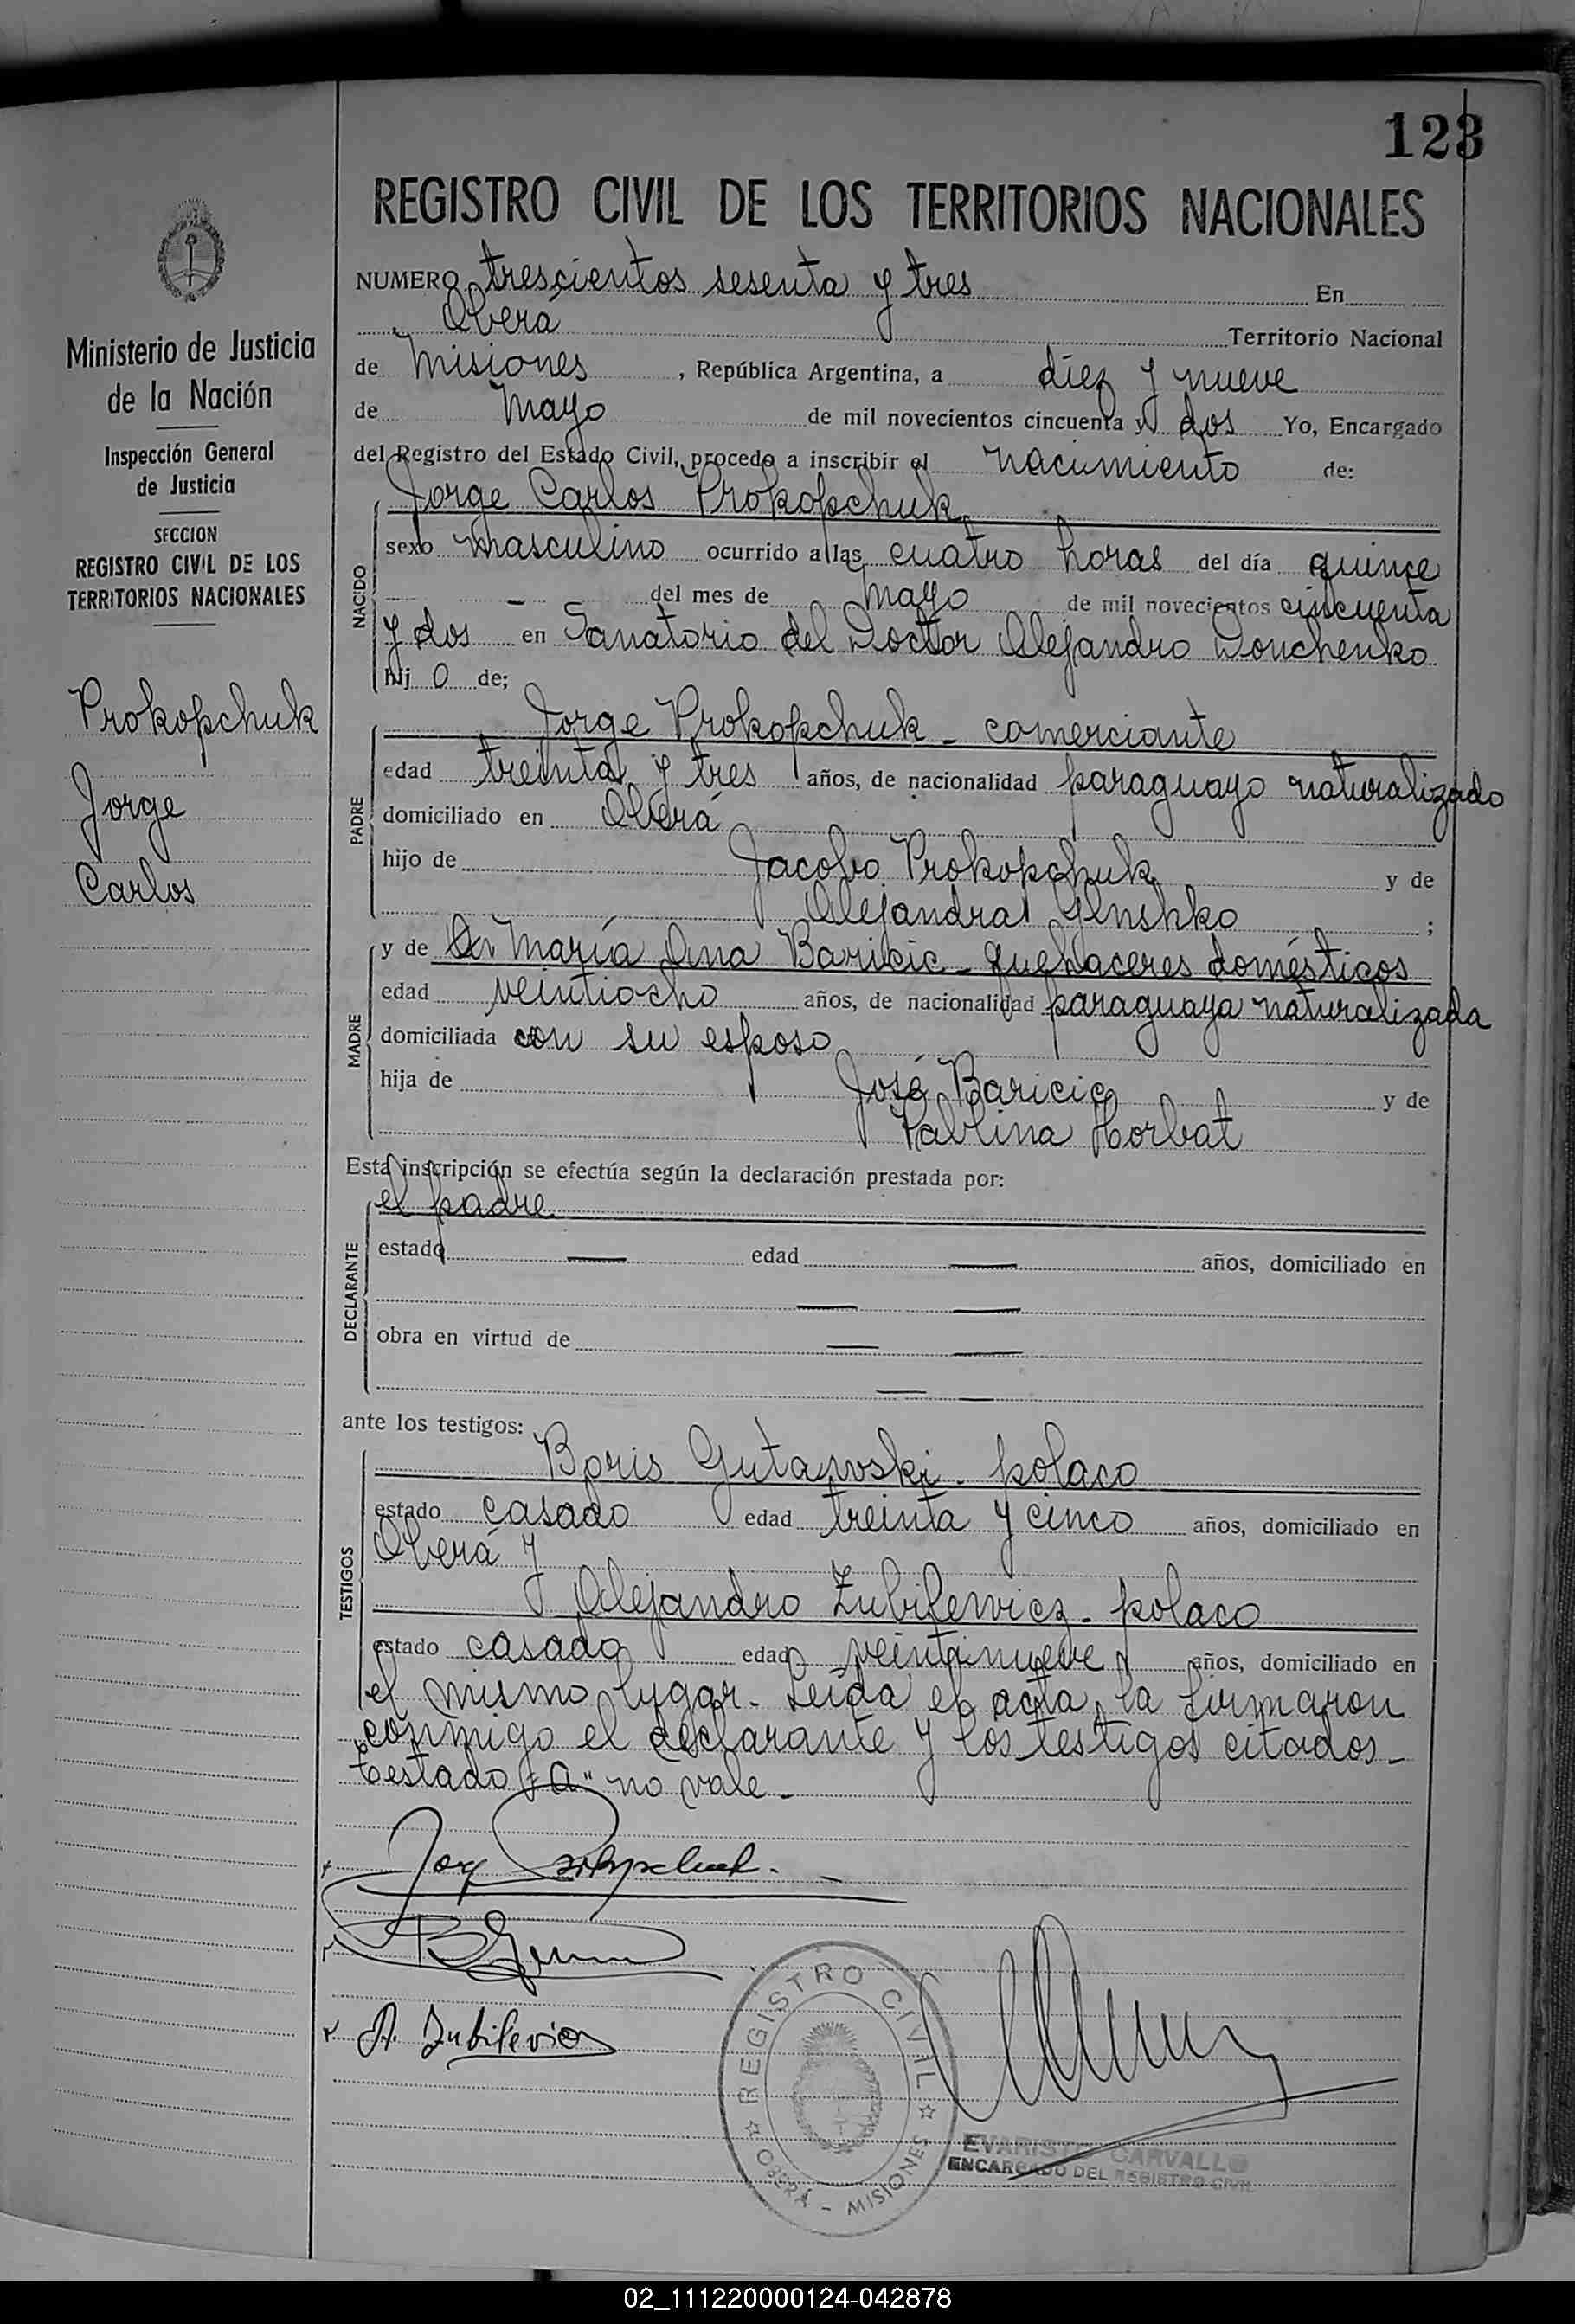 123
REGISTRO CIVIL DE LOS TERRITORIOS NACIONALES
Ministerio de Justicia
de la Nación
Inspección General
de Justicia
SECCION
REGISTRO CIVIL DE LOS
TERRITORIOS NACIONALES
Prokopchuk
Jorge
Carlos
NUMERO trescientos sesenta y tres En
Oberá Territorio Nacional
de Misiones, República Argentina, a diez y nueve
de Mayo de mil novecientos cincuenta y dos Yo, Encargado
del Registro del Estado Civil, procedo a inscribir el nacimiento de:
Jorge Carlos Prokopchuk
NACIDO
sexo masculino ocurrido a las cuatro horas del día quince
del mes de mayo de mil novecientos cincuenta
y dos en Sanatorio del Doctor Alejandro Donchenko
hij o de;
PADRE
Jorge Prokopchuk - comerciante
edad treinta y tres años, de nacionalidad paraguayo naturalizado
domiciliado en Oberá
hijo de Jacobo Prokopchuk y de
Alejandra ;
MADRE
y de María Ana Baricic - quehaceres domésticos
edad veintiocho años, de nacionalidad paraguaya naturalizada
domiciliada con su esposo
hija de José Baricic y de
Pablina Horbat
Esta inscripción se efectúa según la declaración prestada por:
el padre
DECLARANTE
estado — edad — años, domiciliado en
— —
obra en virtud de — —
— —
ante los testigos:
TESTIGOS
Boris Gutawski - polaco
estado casado edad treinta y cinco años, domiciliado en
Oberá y
Alejandro Zubilewicz - polaco
estado casado edad veintinueve años, domiciliado en
el mismo lugar - Leída el acta, la firmaron
conmigo el declarante y los testigos citados -
Testado "a" no vale -
A. Zubilevicz
REGISTRO CIVIL
OBERÁ - MISIONES
EVARISTO CARVALLO
ENCARGADO DEL REGISTRO CIVIL
02_111220000124-042878